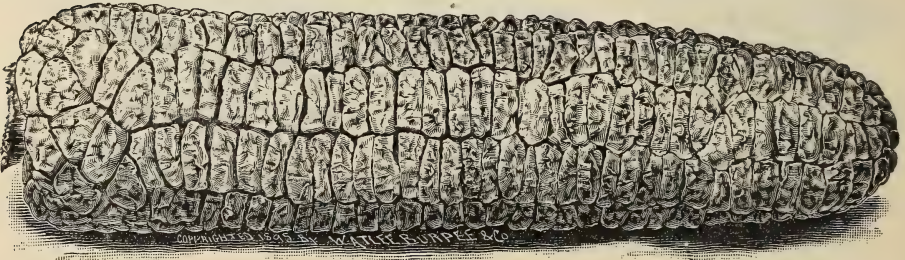 COPYRIGHTED 1895 BY W.ATLEE BURPEE & Co.